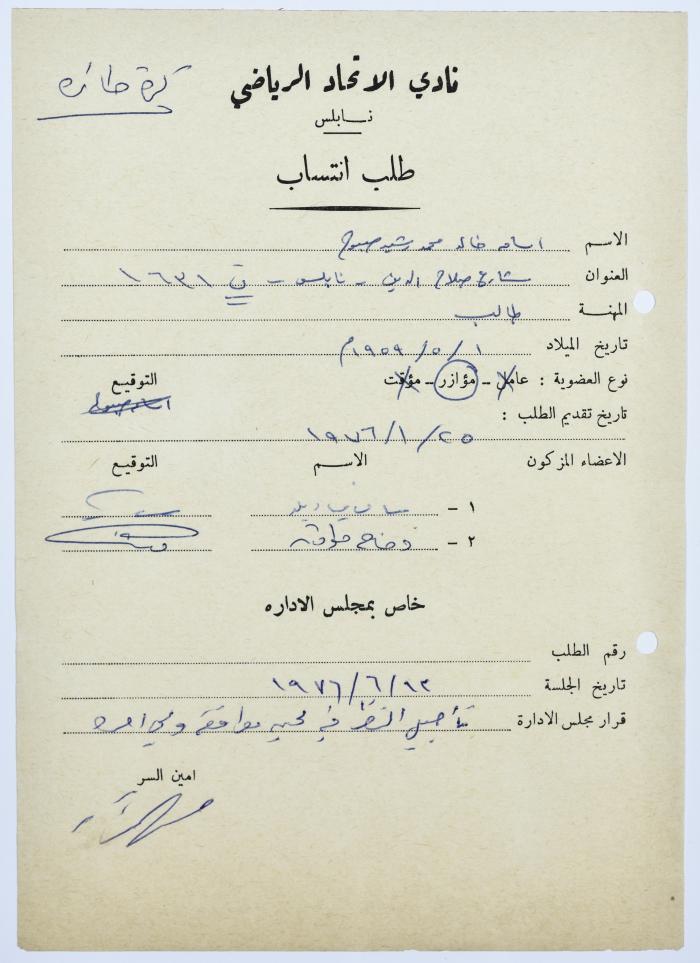 كرة طائرة
نادي الاتحاد الرياضي
نابلس
طلب انتساب
الاسم اسامه خالد محمد رشيد صبوح
العنوان شارع صلاح الدين - نابلس - ت ١٦٣١
المهنة طالب
تاريخ الميلاد ١ / ٥ / ١٩٥٩م
نوع العضوية : عامل - مؤازر - مؤقت
التوقيع
تاريخ تقديم الطلب :
٢٥ / ١ / ١٩٧٦
الاعضاء المزكون الاسم التوقيع
١ -
٢ - وضاح
خاص بمجلس الاداره
رقم الطلب
تاريخ الجلسة ١٢ / ٦ / ١٩٧٦
قرار مجلس الادارة تأجيل النظر في موافقة
امين السر